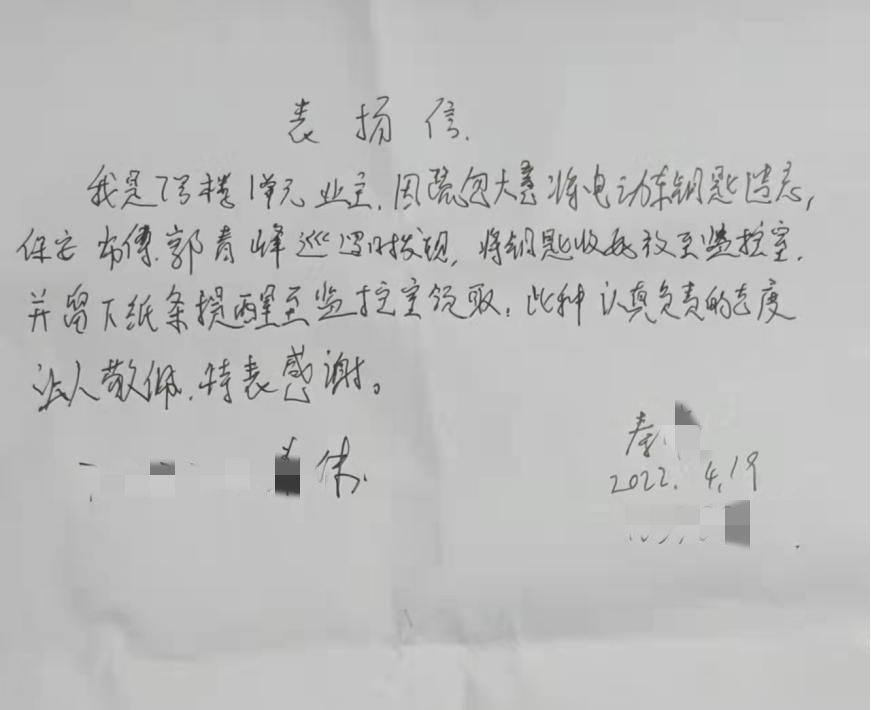 表扬信.
我是7号楼1单元业主.因疏忽大意将电动车钥匙遗忘,
保安 布傅.郭青峰巡逻时发现,将钥匙收好放至监控室.
并留下纸条提醒至监控室领取.此种认真负责的态度
让人敬佩.特表感谢。
秦
2022.4.19